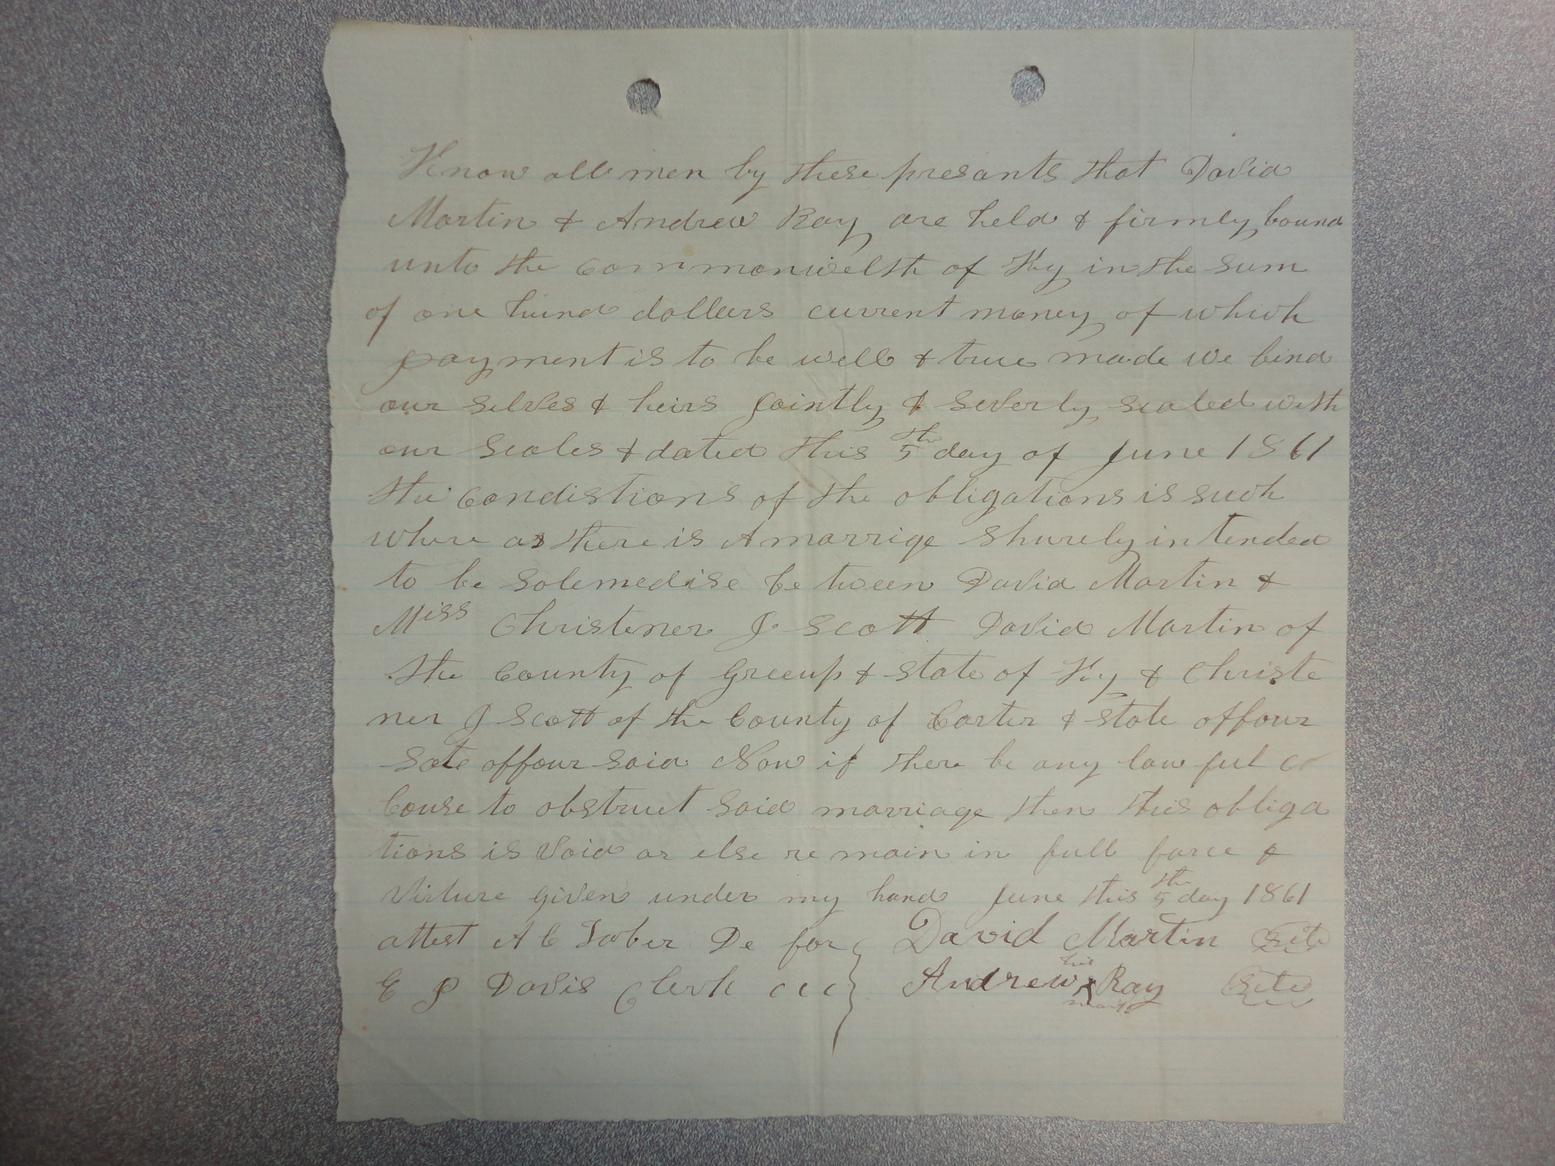 Know all men by these presants that David
Martin & Andrew Ray are held & firmly bound
unto the commonwelth of Ky in the sum
of one hund dollars current money of which
payment is to be well & true made we bind
our selves & heirs jointly & severly sealed with
our seales & dated this 5th day of June 1861
the condistions of the obligations is such
where as there is A marrige shurely intended
to be solemedise be tween David Martin &
Miss Christener J Scott David Martin of
the County of Greeup & state of Ky & Christe
ner J Scott of the County of Carter & state offour
sate offour said Now if there be any law ful
couse to obstruct said marriage then this obliga
tions is void or else re main in full force &
virture given under my hand June this 5th day 1861
attest A C De for David Martin
E P Davis Clerk C C C Andrew his X mark Ray